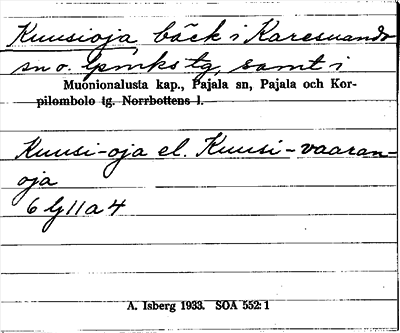 Kuusioja, bäck i Karesuando
sn o. lpmks tg, samt i
Muonionalusta kap., Pajala sn, Pajala och Kor-
pilombolo tg. Norrbottens l.
Kuusi-oja el. Kuusi-vaaran-
oja
6 lj 11 a 4
A. Isberg 1933. SOA 552:1